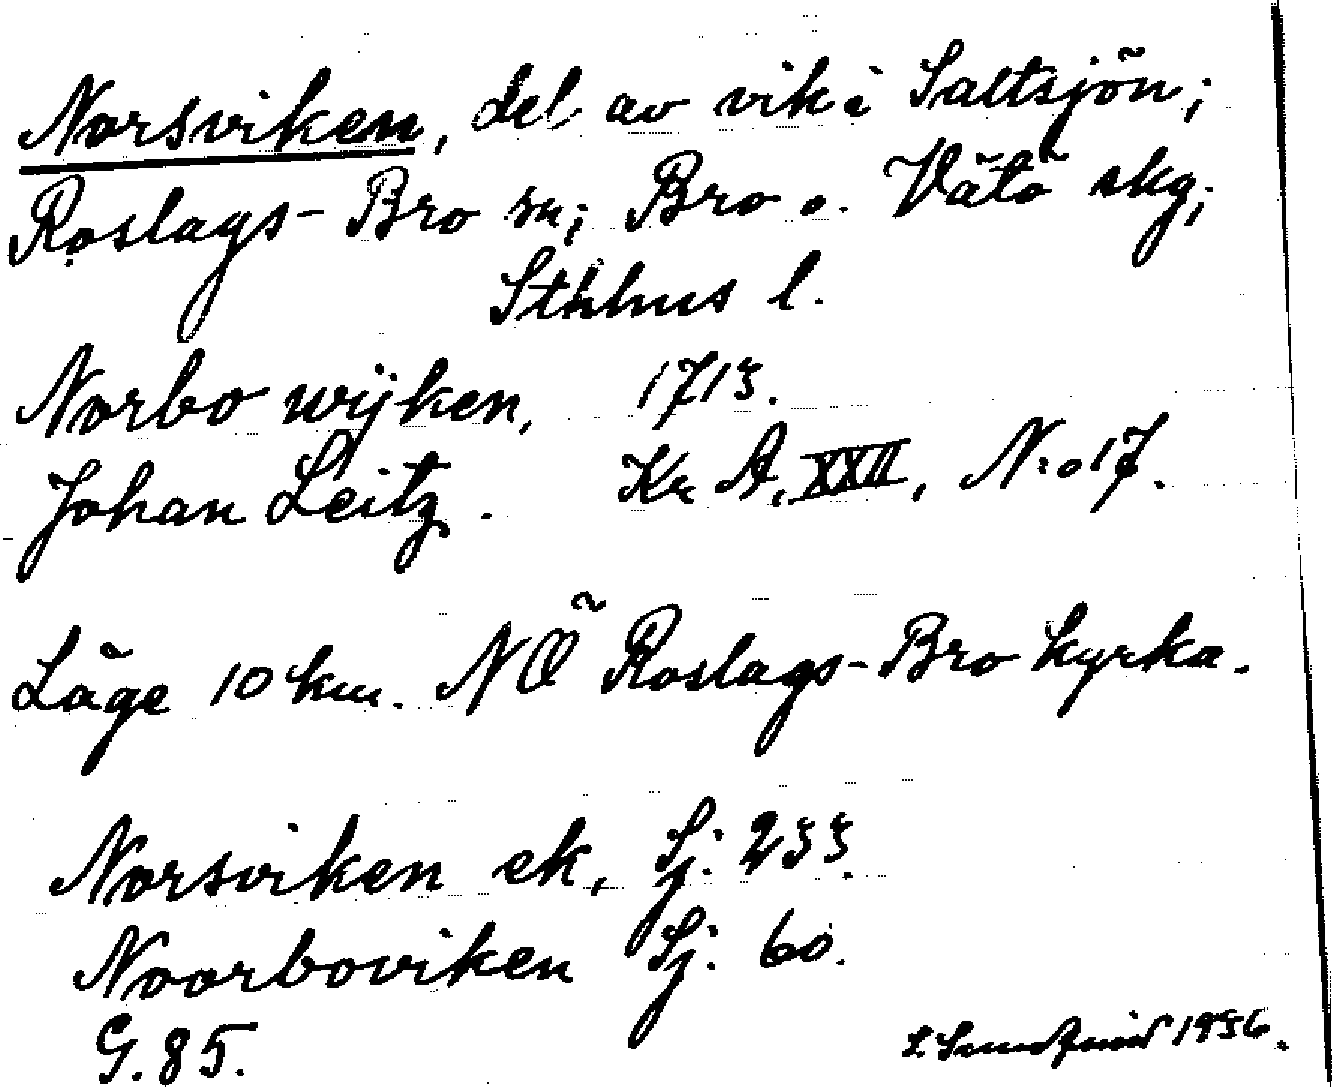 Norsviken, del av vik i Saltsjön;
Roslags-Bro sn; Bro o. Vätö skg;
Sthlms l.
Norbo wijken, 1713.
Johan Leitz. Kr A, XXII, N:o 17.
Läge 10 km. NÖ Roslags-Bro kyrka.
Norsviken ek, Sj: 233.
Noorboviken Sj: 60.
G. 85.
1936.